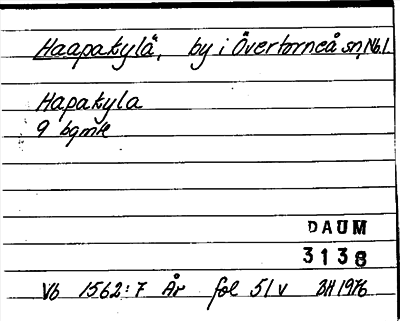 Haapakylä, by i Övertorneå sn, Nb.l
Hapakyla
9 bgmk
DAUM
3138
Vb 1562:7 År fol 51v BH 1976